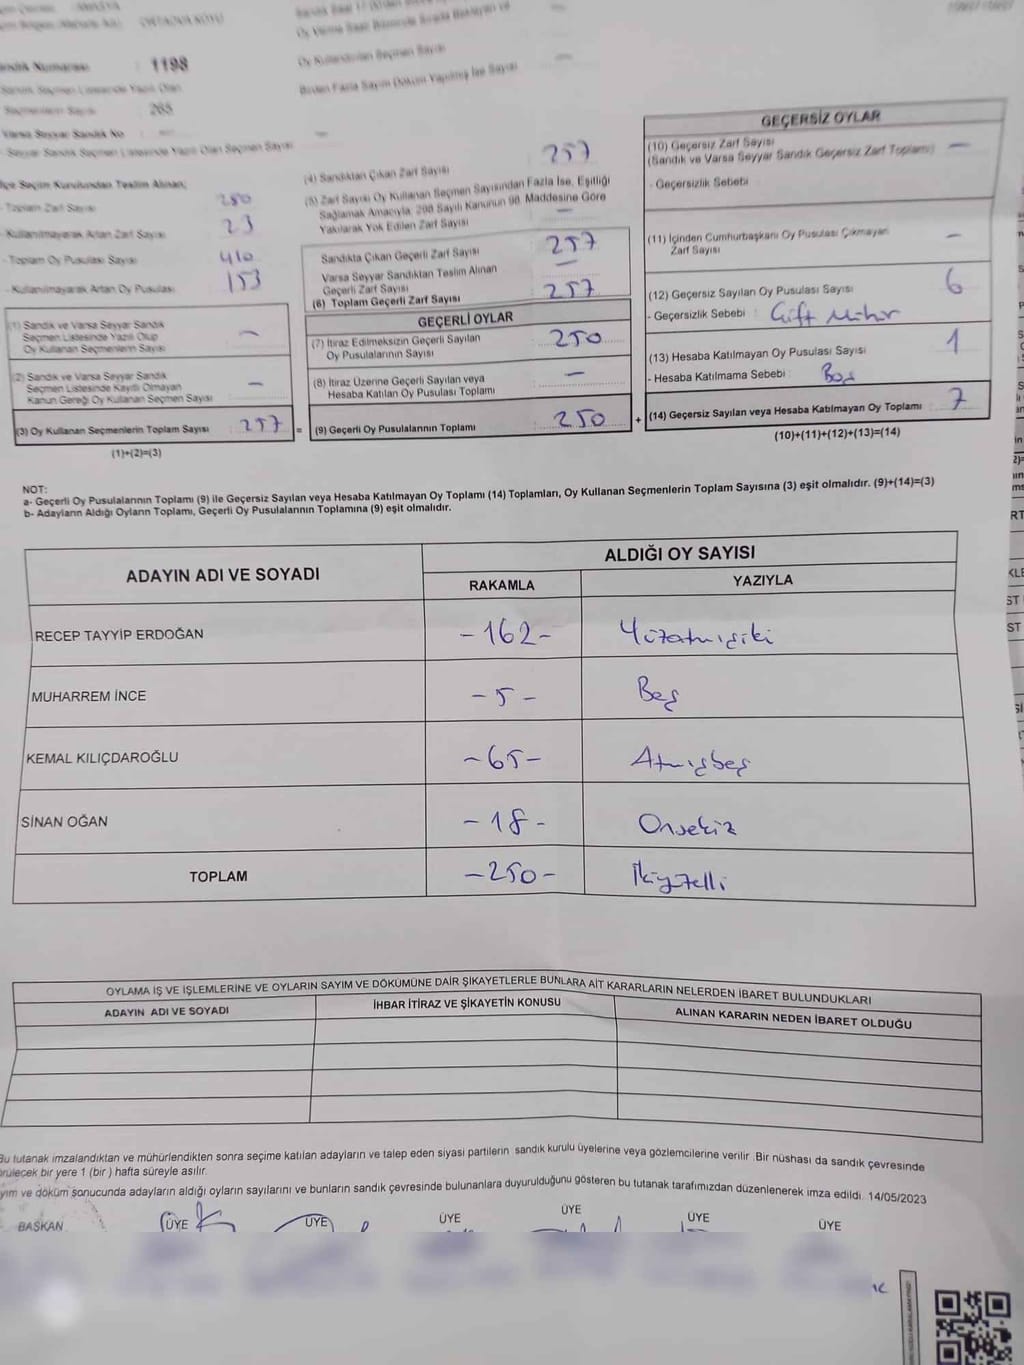 ORTAOVA KÖYÜ
Sandık Numarası : 1198
Sandık Seçmen Listesinde Yazılı Olan
Seçmenlerin Sayısı : 265
Varsa Seyyar Sandık No : -
Seyyar Sandık Seçmen Listesinde Yazılı Olan Seçmen Sayısı -
Oy Kullandırılan Seçmen Sayısı -
Birden Fazla Sayım Döküm Yapılmış İse Sayısı -
İlçe Seçim Kurulundan Teslim Alınan;
- Toplam Zarf Sayısı 280
- Kullanılmayarak Artan Zarf Sayısı 23
- Toplam Oy Pusulası Sayısı 410
- Kullanılmayarak Artan Oy Pusulası 153
(1) Sandık ve Varsa Seyyar Sandık
Seçmen Listesinde Yazılı Olup
Oy Kullanan Seçmenlerin Sayısı : -
(2) Sandık ve Varsa Seyyar Sandık
Seçmen Listesinde Kayıtlı Olmayan
Kanun Gereği Oy Kullanan Seçmen Sayısı : -
(3) Oy Kullanan Seçmenlerin Toplam Sayısı : 257 =
(1)+(2)=(3)
(4) Sandıktan Çıkan Zarf Sayısı 257
(5) Zarf Sayısı Oy Kullanan Seçmen Sayısından Fazla İse, Eşitliği
Sağlamak Amacıyla, 298 Sayılı Kanunun 98. Maddesine Göre
Yakılarak Yok Edilen Zarf Sayısı -
Sandıkta Çıkan Geçerli Zarf Sayısı 257
Varsa Seyyar Sandıktan Teslim Alınan
Geçerli Zarf Sayısı -
(6) Toplam Geçerli Zarf Sayısı 257
GEÇERLİ OYLAR
(7) İtiraz Edilmeksizin Geçerli Sayılan
Oy Pusulalarının Sayısı : 250
(8) İtiraz Üzerine Geçerli Sayılan veya
Hesaba Katılan Oy Pusulası Toplamı : -
(9) Geçerli Oy Pusulalarının Toplamı : 250 +
GEÇERSİZ OYLAR
(10) Geçersiz Zarf Sayısı
(Sandık ve Varsa Seyyar Sandık Geçersiz Zarf Toplamı) -
- Geçersizlik Sebebi
(11) İçinden Cumhurbaşkanı Oy Pusulası Çıkmayan
Zarf Sayısı -
(12) Geçersiz Sayılan Oy Pusulası Sayısı 6
- Geçersizlik Sebebi : Çift Mühür
(13) Hesaba Katılmayan Oy Pusulası Sayısı 1
- Hesaba Katılmama Sebebi : Boş
(14) Geçersiz Sayılan veya Hesaba Katılmayan Oy Toplamı : 7
(10)+(11)+(12)+(13)=(14)
NOT:
a- Geçerli Oy Pusulalarının Toplamı (9) ile Geçersiz Sayılan veya Hesaba Katılmayan Oy Toplamı (14) Toplamları, Oy Kullanan Seçmenlerin Toplam Sayısına (3) eşit olmalıdır. (9)+(14)=(3)
b- Adayların Aldığı Oyların Toplamı, Geçerli Oy Pusulalarının Toplamına (9) eşit olmalıdır.
ADAYIN ADI VE SOYADI
ALDIĞI OY SAYISI
RAKAMLA YAZIYLA
RECEP TAYYİP ERDOĞAN -162- Yüzatmışiki
MUHARREM İNCE -5- Beş
KEMAL KILIÇDAROĞLU -65- Atmışbeş
SİNAN OĞAN -18- Onsekiz
TOPLAM -250- İkiyüzelli
OYLAMA İŞ VE İŞLEMLERİNE VE OYLARIN SAYIM VE DÖKÜMÜNE DAİR ŞİKAYETLERLE BUNLARA AİT KARARLARIN NELERDEN İBARET BULUNDUKLARI
ADAYIN ADI VE SOYADI İHBAR İTİRAZ VE ŞİKAYETİN KONUSU ALINAN KARARIN NEDEN İBARET OLDUĞU
Bu tutanak imzalandıktan ve mühürlendikten sonra seçime katılan adayların ve talep eden siyasi partilerin sandık kurulu üyelerine veya gözlemcilerine verilir. Bir nüshası da sandık çevresinde
örülecek bir yere 1 (bir) hafta süreyle asılır.
yım ve döküm sonucunda adayların aldığı oyların sayılarını ve bunların sandık çevresinde bulunanlara duyurulduğunu gösteren bu tutanak tarafımızdan düzenlenerek imza edildi. 14/05/2023
BAŞKAN ÜYE ÜYE ÜYE ÜYE ÜYE ÜYE